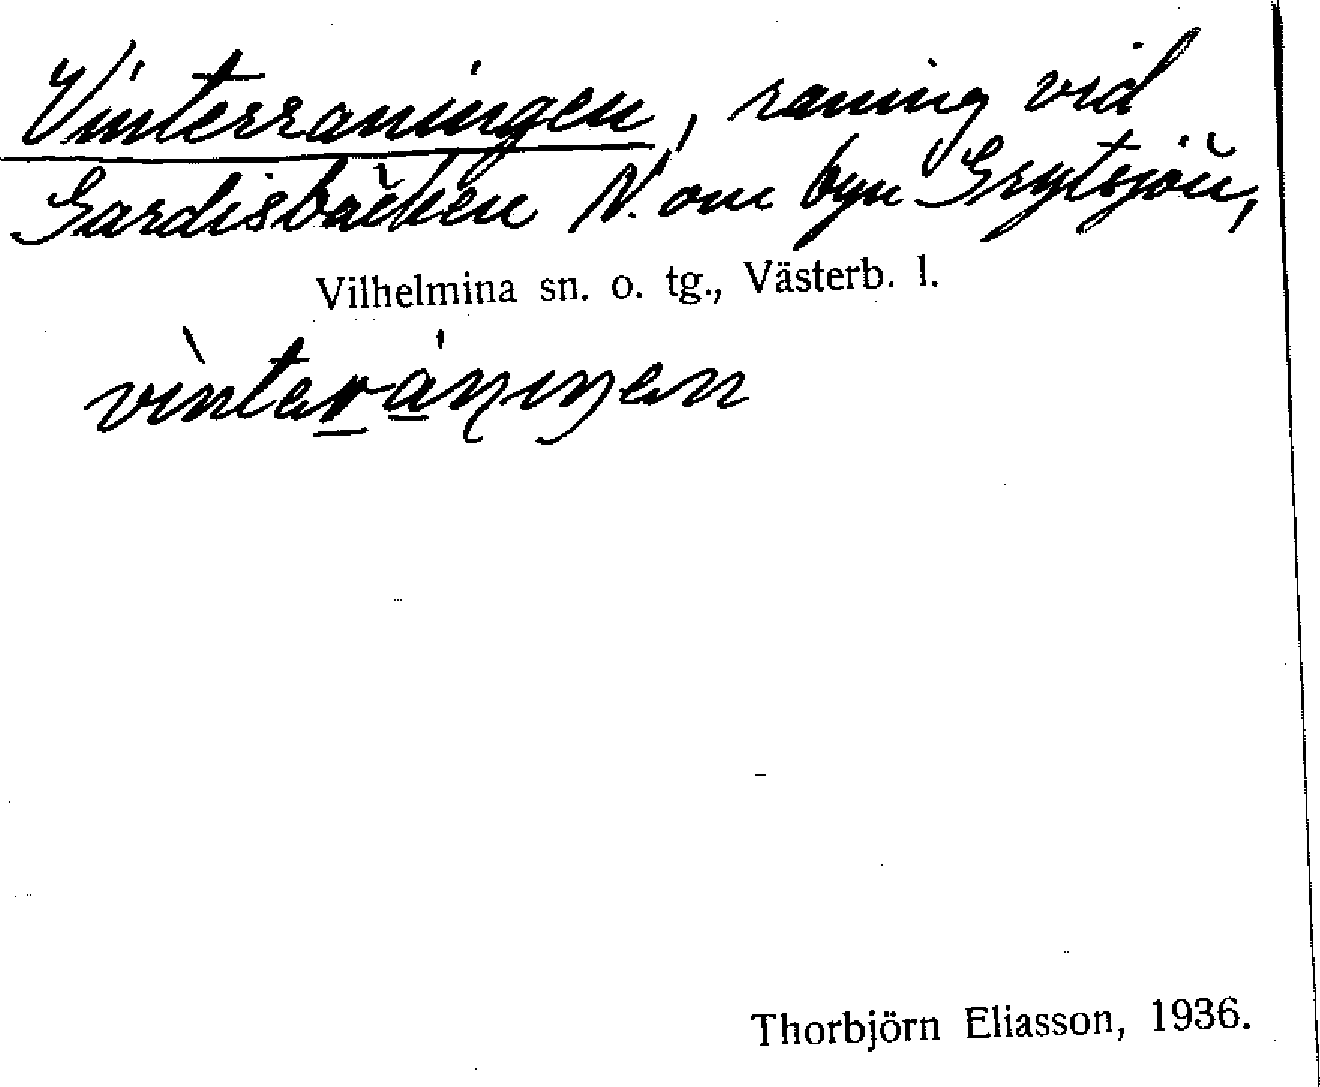 Vinterraningen, raning vid
Gardisbäcken N. om byn Grytsjön,
Vilhelmina sn. o. tg., Västerb. l.
Thorbjörn Eliasson, 1936.